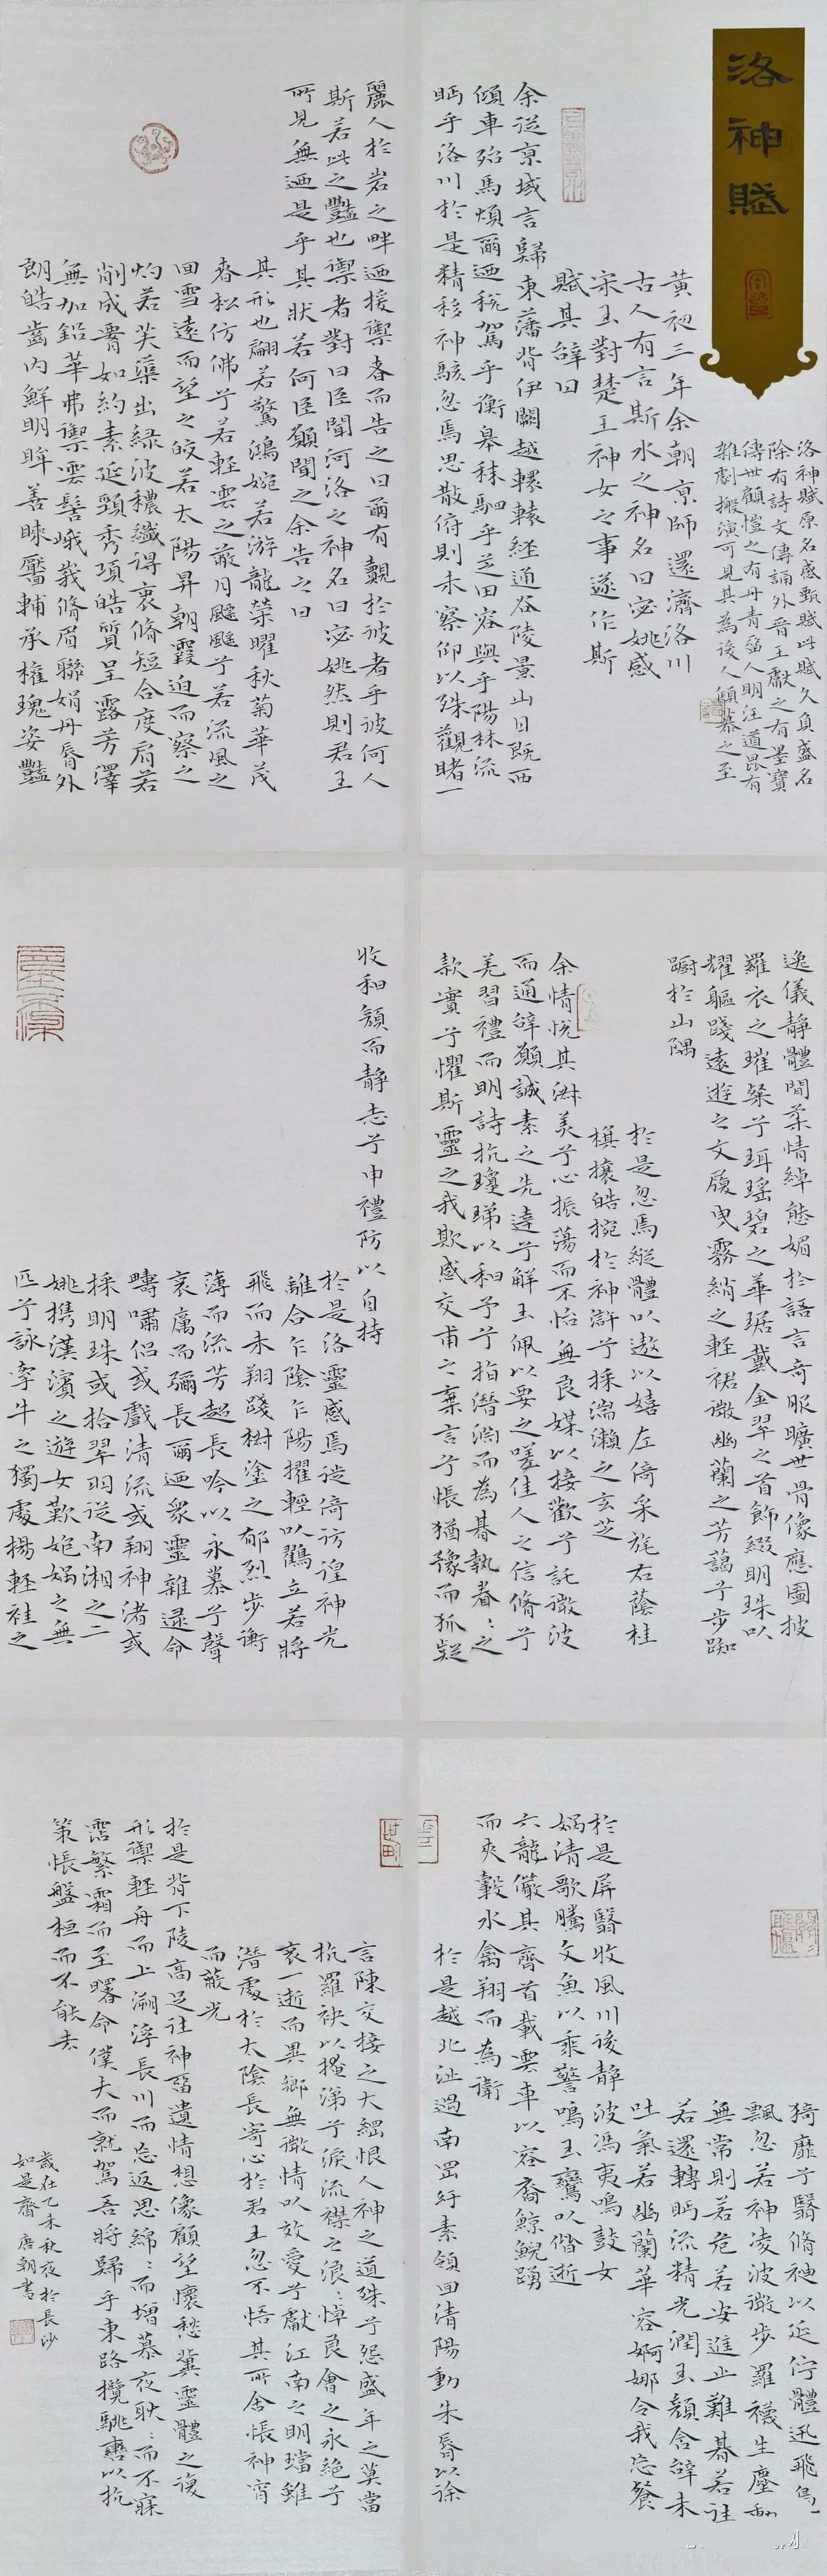 洛神賦
洛神賦原名感甄賦此賦久負盛名
除有詩文傳誦外晉王獻之有墨寶
傳世顧愷之有丹青留人明汪道昆有
雜劇搬演可見其為後人傾慕之至
黃初三年余朝京師還濟洛川
古人有言斯水之神名曰宓妃感
宋玉對楚王神女之事遂作斯
賦其辭曰
余從京域言歸東藩背伊闕越轘轅經通谷陵景山日既西
傾車殆馬煩爾迺稅駕乎蘅皋秣駟乎芝田容與乎陽林流
眄乎洛川於是精移神駭忽焉思散俯則未察仰以殊觀睹一
麗人於岩之畔迺援禦者而告之曰爾有覿於彼者乎彼何人
斯若此之豔也禦者對曰臣聞河洛之神名曰宓妃然則君王
所見無迺是乎其狀若何臣願聞之余告之曰
其形也翩若驚鴻婉若游龍榮曜秋菊華茂
春松仿佛兮若輕雲之蔽月飄飄兮若流風之
回雪遠而望之皎若太陽昇朝霞迫而察之
灼若芙蕖出綠波穠纖得衷脩短合度肩若
削成腰如約素延頸秀項皓質呈露芳澤
無加鉛華弗禦雲髻峨峨脩眉聯娟丹唇外
朗皓齒內鮮明眸善睞靨輔承權瑰姿豔
逸儀靜體閒柔情綽態媚於語言奇服曠世骨像應圖披
羅衣之璀粲兮珥瑤碧之華琚戴金翠之首飾綴明珠以
耀軀踐遠遊之文履曳霧綃之輕裾微幽蘭之芳藹兮步踟
躕於山隅
於是忽焉縱體以遨以嬉左倚采旄右蔭桂
旗攘皓捥於神滸兮採湍瀨之玄芝
余情悅其淑美兮心振蕩而不怡無良媒以接歡兮託微波
而通辭願誠素之先達兮解玉佩以要之嗟佳人之信脩兮
羌習禮而明詩抗瓊珶以和予兮指潛淵而為碁執眷〻之
款實兮懼斯靈之我欺感交甫之棄言兮悵猶豫而狐疑
收和顏而靜志兮申禮防以自持
於是洛靈感焉徙倚彷徨神光
離合乍陰乍陽擢輕以鶴立若將
飛而未翔踐椒塗之郁烈步衡
薄而流芳超長吟以永慕兮聲
哀厲而彌長爾迺眾靈雜遝命
疇嘯侶或戲清流或翔神渚或
採明珠或拾翠羽從南湘之二
姚攜漢濱之遊女歎匏媧之無
匹兮詠牽牛之獨處揚輕袿之
猗靡兮翳脩袖以延佇體迅飛鳧
飄忽若神凌波微步羅襪生塵動
無常則若危若安進止難碁若往
若還轉眄流精光潤玉顏含辭未
吐氣若幽蘭華容婀娜令我忘餐
於是屏翳收風川後靜波馮夷鳴鼓女
媧清歌騰文魚以乘警鳴玉鸞以偕逝
六龍儼其齊首載雲車以容裔鯨鯢踴
而夾轂水禽翔而為衛
於是越北沚過南岡紆素領回清陽動朱唇以徐
言陳交接之大綱恨人神之道殊兮怨盛年之莫當
抗羅袂以掩涕兮淚流襟之浪〻悼良會之永絕兮
哀一逝而異鄉無微情以效愛兮獻江南之明璫雖
潛處於太陰長寄心於君王忽不悟其所舍悵神宵
而蔽光
於是背下陵高足往神留遺情想像顧望懷愁冀靈體之復
形禦輕舟而上溯浮長川而忘返思綿〻而增慕夜耿〻而不寐
霑繁霜而至曙命僕夫而就駕吾將歸乎東路攬騑轡以抗
策悵盤桓而不能去
歲在乙未秋夜於長沙
如是齋唐朝書